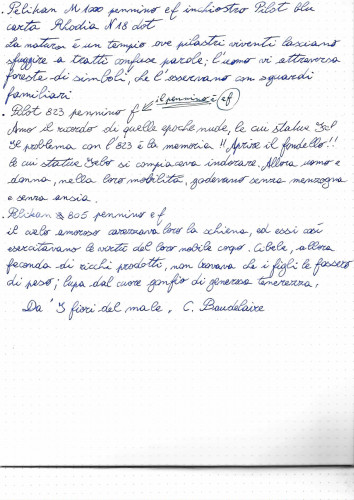 . Pelikan M 1000 pennino ef inchiostro Pilot blu
carta Rhodia N 18 dot
La natura è un tempio ove pilastri viventi lasciano
sfuggire a tratti confuse parole; l'uomo vi attraversa
foreste di simboli, che l'osservano con sguardi
familiari
. Pilot 823 pennino f il pennino è ef
Amo il ricordo di quelle epoche nude, le cui statue
Il problema con l'823 è la memoria!! Aprire il fondello!!
le cui statue Febo si compiaceva indorare. Allora uomo e
donna, nella loro mobilità, godevano senza menzogna
e senza ansia.
. Pelikan 805 pennino ef
il cielo amoroso carezzava loro la schiena, ed essi così
esercitavano le virtù del loro nobile corpo. Cibele, allora
feconda di ricchi prodotti, non trovava che i figli le fossero
di peso; lupa dal cuore gonfio di generosa tenerezza,
Da "I fiori del male", C. Baudelaire